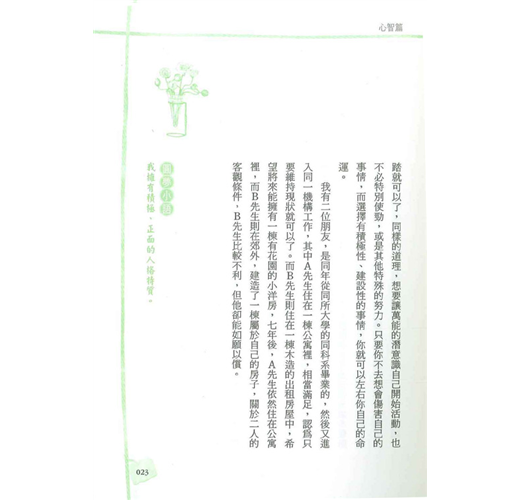 心智篇
踏就可以了，同樣的道理，想要讓萬能的潛意識自己開始活動，也
不必特別使勁，或是其他特殊的努力。只要你不去想會傷害自己的
事情，而選擇有積極性、建設性的事情，你就可以左右你自己的命
運。
我有二位朋友，是同年從同所大學的同科系畢業的，然後又進
入同一機構工作，其中A先生住在一棟公寓裡，相當滿足，認為只
要維持現狀就可以了。而B先生則住在一棟木造的出租房屋中，希
望將來能擁有一棟有花園的小洋房，七年後，A先生依然住在公寓
裡，而B先生則在郊外，建造了一棟屬於自己的房子，關於二人的
客觀條件，B先生比較不利，但他卻能如願以償。
我擁有積極、正面的人格特質。
023